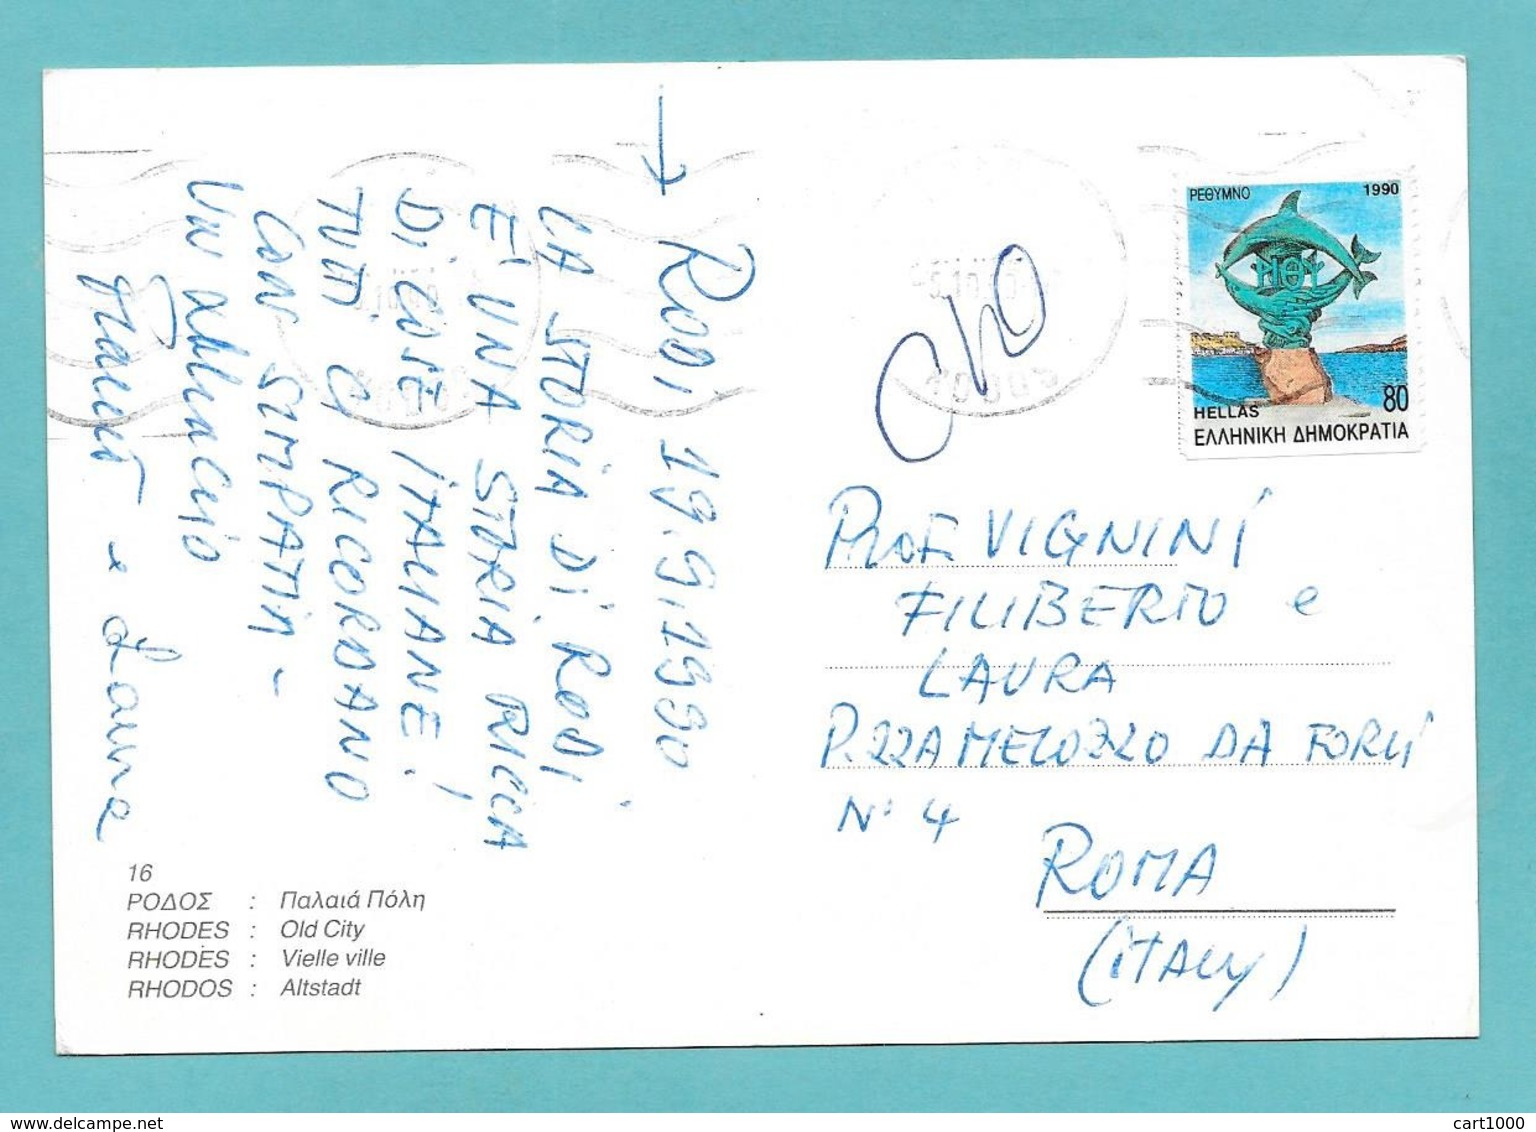 → RODI, 19.9.1990
LA STORIA DI RODI
E' UNA STORIA RICCA
DI COSE ITALIANE!
TUTTI CI RICORDANO
CON SIMPATIA -
Un abbraccio
e Laura
16
ΡΟΔΟΣ : Παλαιά Πόλη
RHODES : Old City
RHODES : Vielle ville
RHODOS : Altstadt
ΡΕΘΥΜΝΟ 1990
ΡΙΘΥ
80
HELLAS
ΕΛΛΗΝΙΚΗ ΔΗΜΟΚΡΑΤΙΑ
PROF. VIGNINI
FILIBERTO e
LAURA
P.ZZA MELOZZO DA FORLI
N° 4
ROMA
(ITALY)
cart1000